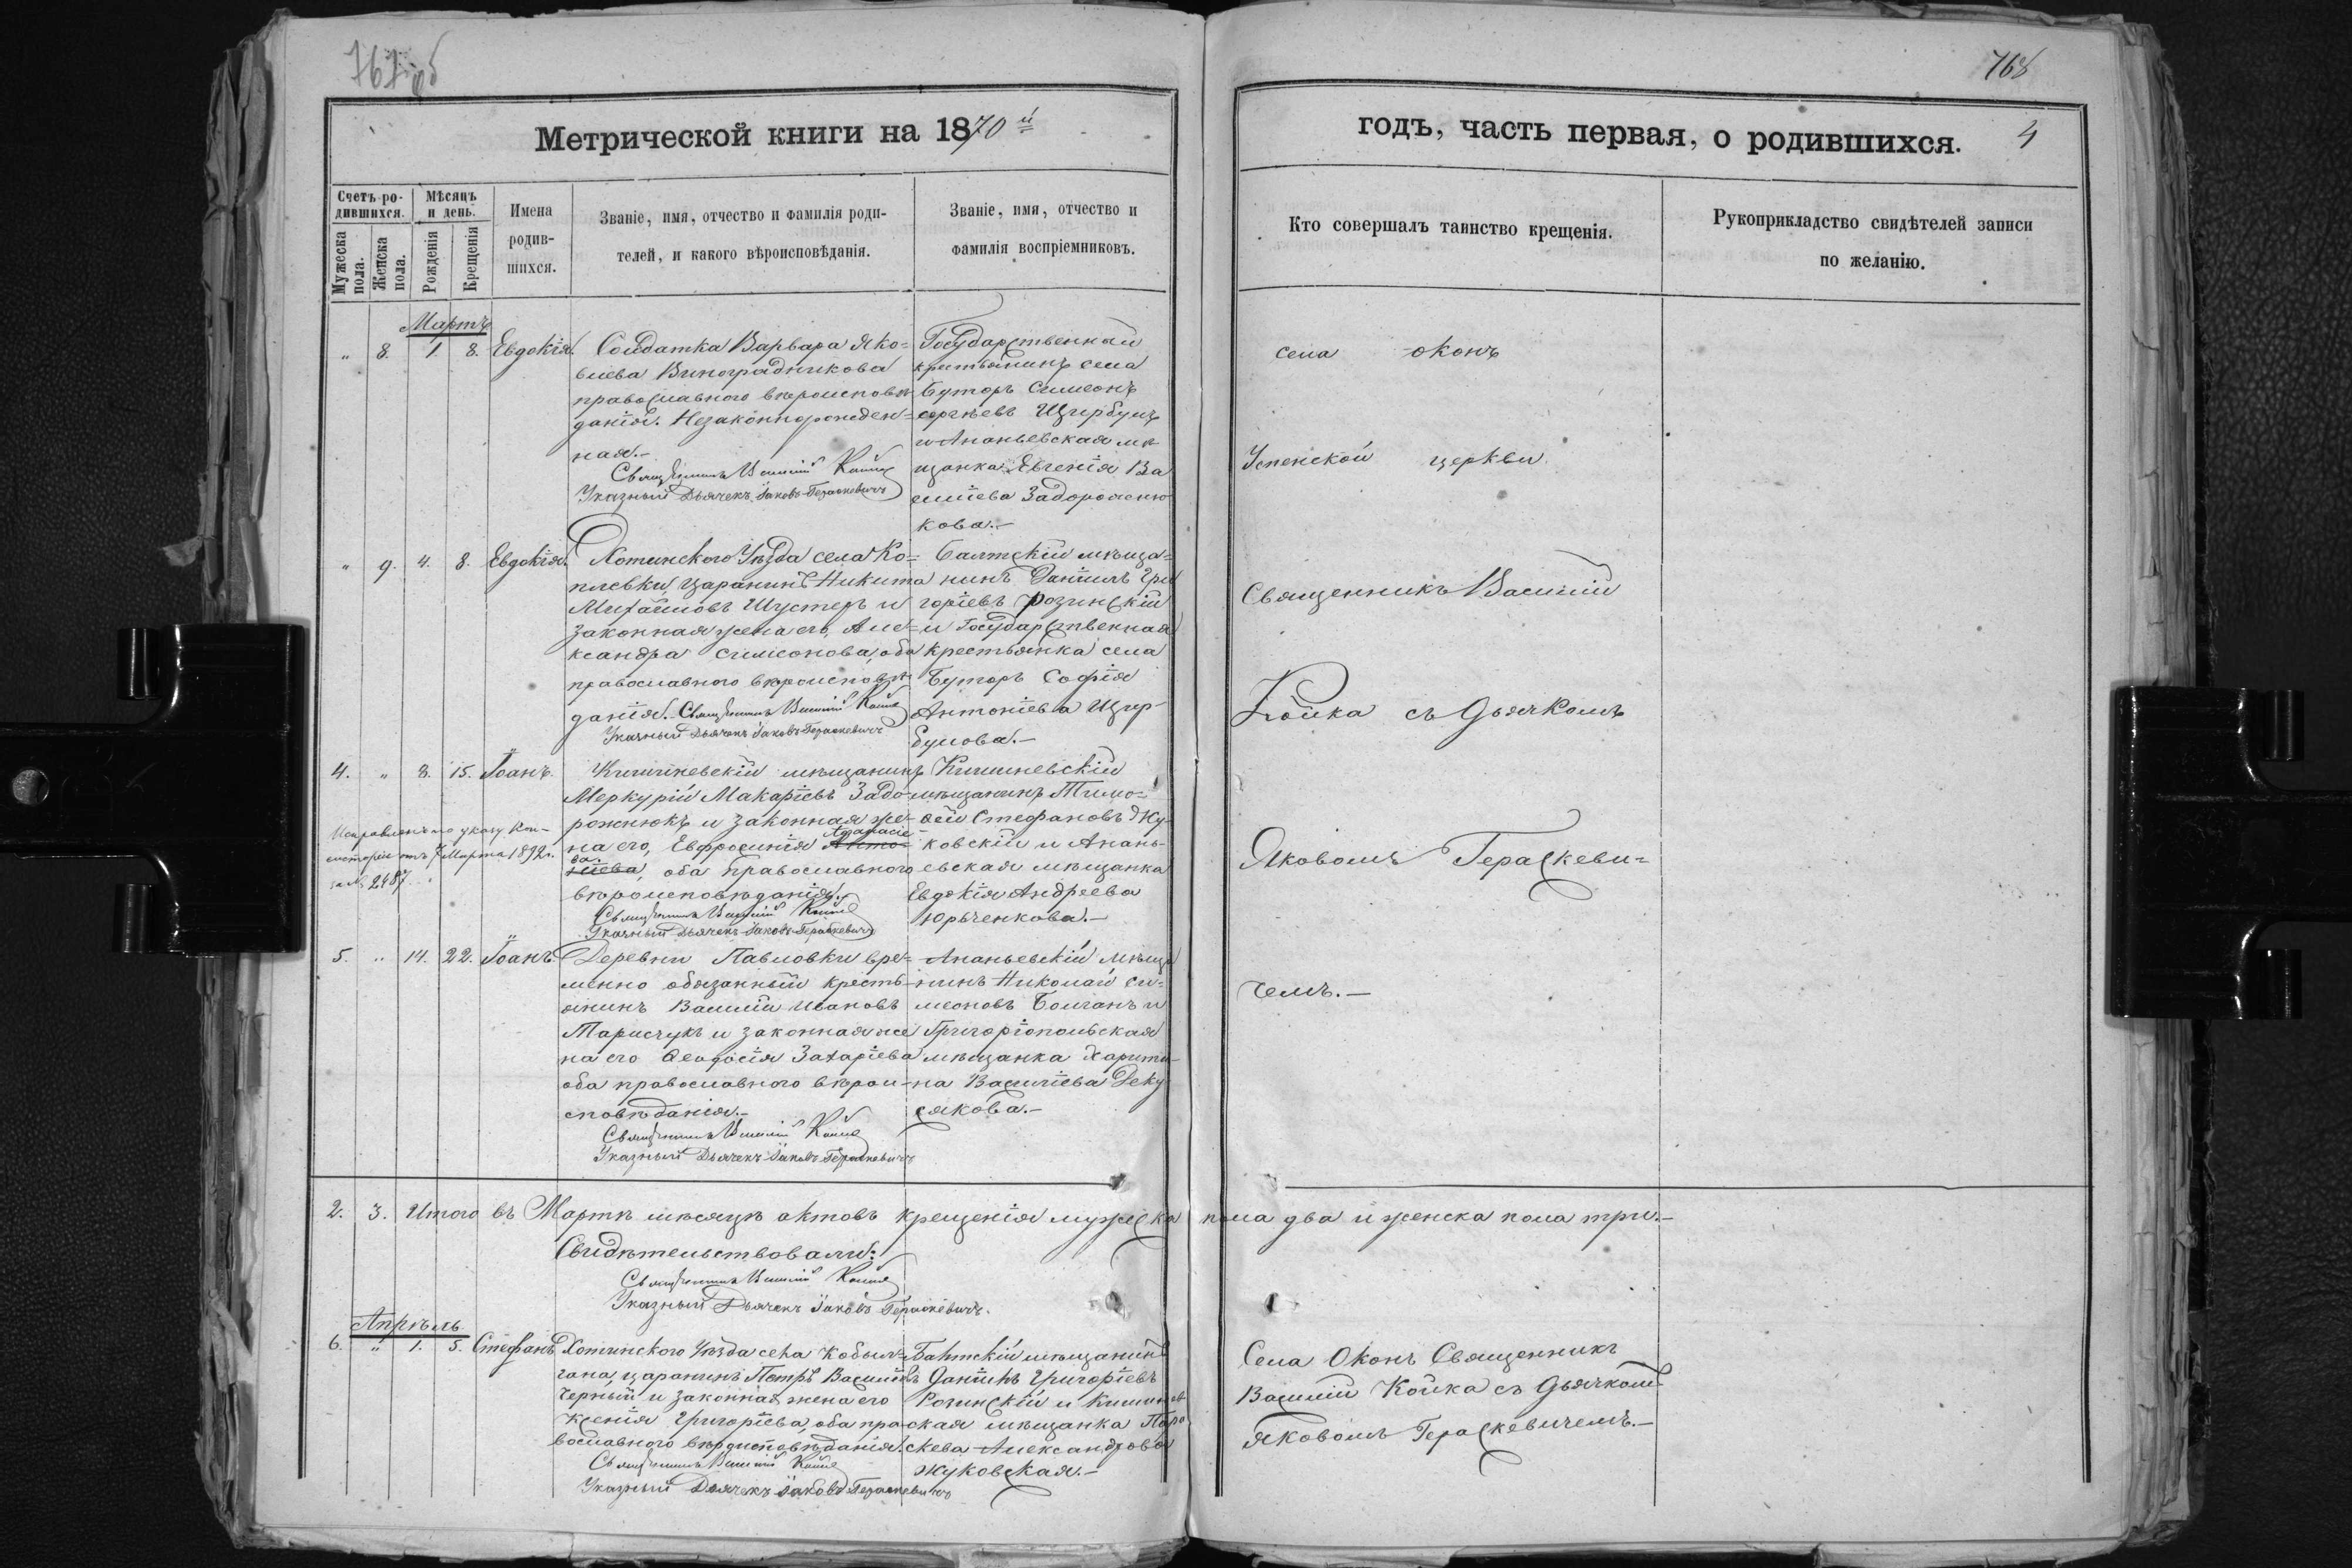 767 об
Метрической книги на 1870й
Счетъ ро-
дившихся.
Мѣсяцъ
и день.
Мужеска
пола.
Женска
пола.
Рожденія
Крещенія
Имена
родив-
шихся.
Званіе, имя, отчество и фамилія роди-
телей, и какого вѣроисповѣданія.
Званіе, имя, отчество и
фамилія воспріемниковъ.
Мартъ
" 8. 1. 8. Евдокія.
Солдатка Варвара Яко=
влева Виноградникова
православнаго вѣроисповѣ
данія. Незаконнорожден=
ная.-
Священникъ Василій Койка
Указный Дьячекъ Іаковъ Гераскевичъ
Государственный
крестьянинъ села
Буторъ Симеонъ
Щирбулъ
и Ананьевская мѣ
щанка Евгенія Ва
силіева Задорожню
кова.-
" 9. 4. 8. Евдокія.
Хотинскаго Уѣзда села Ко=
плевки, царанинъ Никита
Михайловъ Шустеръ и
законная жена его, Але=
ксандра Симеонова, оба
православнаго вѣроисповѣ
данія.- Священникъ Василій Койка
Указный Дьячекъ Іаковъ Гераскевичъ
Балтскій мѣща=
нинъ Даніилъ Гри
горіевъ Розинскій
и Государственная
крестьянка села
Буторъ Софія
Антоніева Щир-
булова.-
4. " 8. 15. Іоанъ.
Кишиневскій мѣщанинъ
Меркурій Макаріевъ Задо-
рожнюкъ и законная же-
Афанасіе-
на его, Евфросинія Анто-
ва.
ніева, оба православнаго
вѣроисповѣданія.
Священникъ Василій Койка
Указный Дьячекъ Іаковъ Гераскевичъ
Исправлено по указу Кон-
систоріи отъ 7 Марта 1892 г.
за № 2487
Кишиневскій
мѣщанинъ Тимо=
ѳей Стефановъ Жу-
ковскій и Анань-
евская мѣщанка
Евдокія Андреева
Юрьченкова.-
5. " 14. 22. Іоанъ.
Деревни Павловки вре=
менно обязанный кресть-
янинъ Василій Ивановъ
Марисчукъ и законная же
на его Ѳеодосія Захаріева
оба православнаго вѣрои-
сповѣданія.-
Священникъ Василій Койка
Указный Дьячекъ Іаковъ Гераскевичъ
Ананьевскій мѣща
нинъ Николай Си=
меоновъ Болганъ и
Григоріопольская
мѣщанка Харити-
на Василіева Деку
сякова.-
2. 3. Итого въ Мартѣ мѣсяцѣ актовъ крещенія мужеска пола два и женска пола три.-
Свидѣтельствовали:
Священникъ Василій Койка
Указный Дьячекъ Іаковъ Гераскевичъ.
Апрѣль
6. " 1. 5. Стефанъ
Хотинскаго Уѣзда села Кобыл=
чана, царанинъ Петръ Василіевъ
Черный и законная жена его
Ксенія Григоріева, оба пра-
вославнаго вѣроисповѣданія.
Священникъ Василій Койка
Указный Дьячекъ Іаковъ Гераскевичъ
Балтскій мѣщанинъ
Даніилъ Григоріевъ
Розинскій и Кишинев-
ская мѣщанка Пара
скева Александрова
Жуковская.-
768
годъ, часть первая, о родившихся. 4
Кто совершалъ таинство крещенія.
Рукоприкладство свидѣтелей записи
по желанію.
села Оконъ
Успенской церкви
Священникъ Василій
Койка съ Дьячкомъ
Яковомъ Гераскеви=
чемъ.-
Села Оконъ Священникъ
Василій Койка съ Дьячкомъ
Яковомъ Гераскевичемъ.-